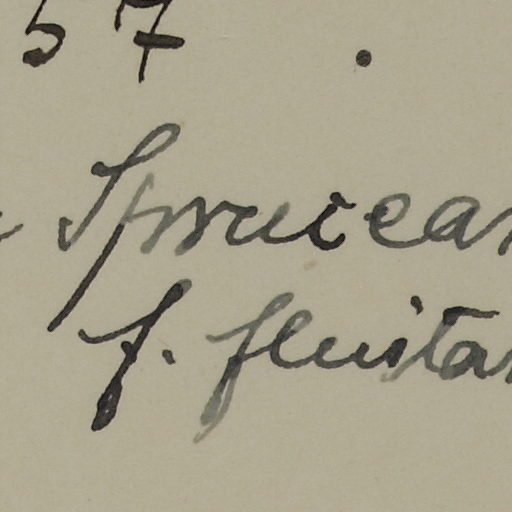 57 .
Sprucean
f. fluitan